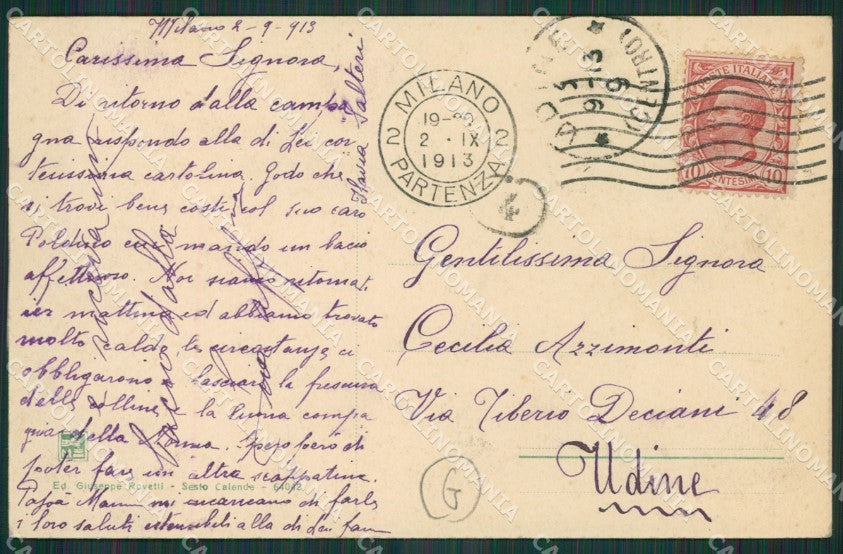 Milano 2-9-913
Carissima Signora,
Di ritorno dalla campa
gna rispondo alla di Lei cor
tesissima cartolina. Godo che
si trovi bene costì col suo caro
Poldino cui mando un bacio
affettuoso. Noi siamo ritornati
ier mattina ed abbiamo trovato
molto caldo, le circostanze ci
obbligarono a lasciare la frescura
delle colline e la buona compa
gnia della Nonna. Spero però di
poter fare un'altra scappatina.
Papà Mamma mi incaricano di farle
i loro saluti estensibili alla di Lei fam
Flavia Salteri
MILANO
19-20
2 · IX
1913
PARTENZA
2 2
UDINE
9-13
(CENTRO)
4
POSTE ITALIANE
10 CENTESIMI 10
Gentilissima Signora
Cecilia Azzimonti
Via Tiberio Deciani 48
Udine
G
Ed. Giuseppe Rovetti - Sesto Calende - 64042
CARTOLINOMANIA